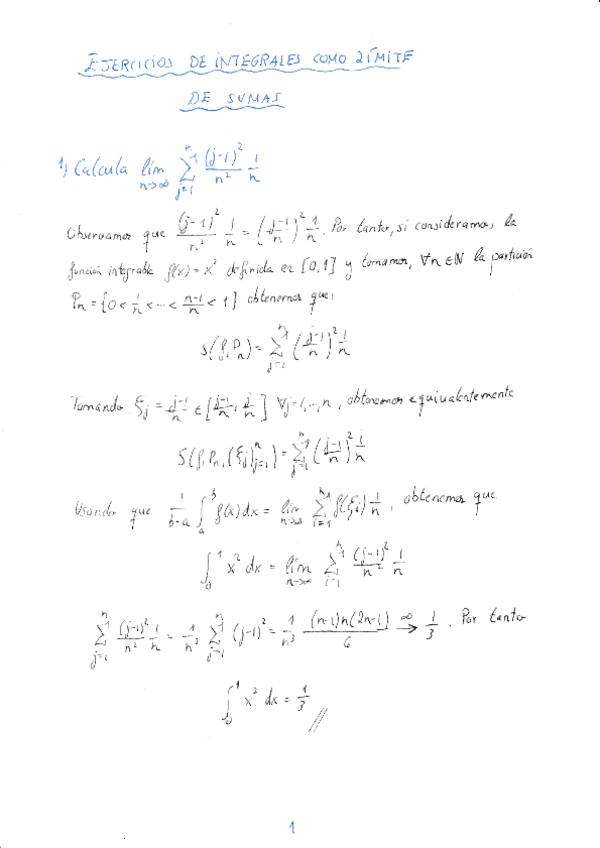 EJERCICIOS DE INTEGRALES COMO LÍMITE
DE SUMAS
1) Calcula lím_{n→∞} ∑_{j=1}^{n} (j-1)²/n² 1/n
Observamos que (j-1)²/n² 1/n = ((j-1)/n)² 1/n. Por tanto, si consideramos la
función integrable f(x) = x² definida en [0,1] y tomamos, ∀n∈ℕ la partición
Pn = {0 < 1/n < ... < (n-1)/n < 1} obtenemos que:
s(f,Pn) = ∑_{j=1}^{n} ((j-1)/n)² 1/n
Tomando ξj = (j-1)/n ∈ [(j-1)/n, j/n] ∀j=1,...,n, obtenemos equivalentemente
S(f,Pn,(ξj)_{j=1}^{n}) = ∑_{j=1}^{n} ((j-1)/n)² 1/n
Usando que 1/(b-a) ∫_a^b f(x)dx = lím_{n→∞} ∑_{i=1}^{n} f(ξi) 1/n, obtenemos que
∫_0^1 x² dx = lím_{n→∞} ∑_{i=1}^{n} (j-1)²/n² 1/n
∑_{j=1}^{n} (j-1)²/n² 1/n = 1/n³ ∑_{j=1}^{n} (j-1)² = 1/n³ (n-1)n(2n-1)/6 →^∞ 1/3. Por tanto
∫_0^1 x² dx = 1/3 //
1